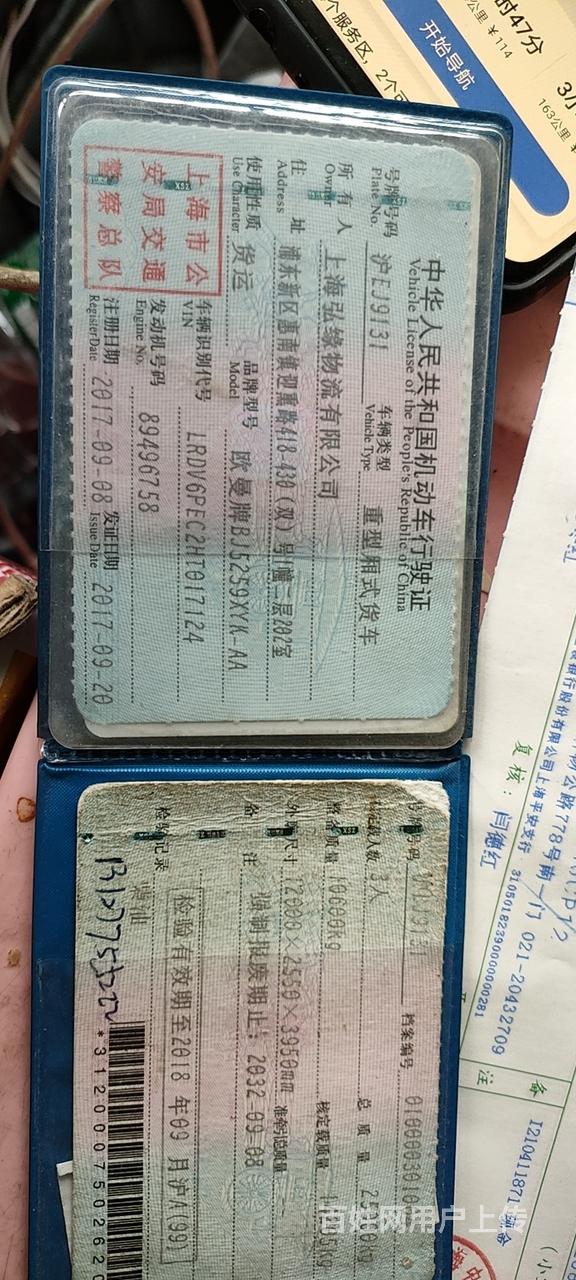 中华人民共和国机动车行驶证
Vehicle License of the People's Republic of China
号牌号码 沪EJ9131 车辆类型 重型厢式货车
Plate No. Vehicle Type
所有人 上海弘缘物流有限公司
Owner
住址 浦东新区惠南镇迎熏路418-430(双)号1幢二层202室
Address
使用性质 货运 品牌型号 欧曼牌BJ5259XYK-AA
Use Character Model
车辆识别代号 LRDV6PEC2HT017124
VIN
发动机号码 89496758
Engine No.
注册日期 2017-09-08 发证日期 2017-09-20
Register Date Issue Date
上海市公
安局交通
警察总队
号牌号码 档案编号
人数 3人 总质量
质量 10000kg 核定载质量
外廓尺寸 12000×2550×3950mm 准牵引总质量
备注 强制报废期止: 2032-09-08
检验记录
检验有效期至2018年09月沪A(99)
开始导航
时47分
公里 ¥114
个服务区, 2个
163公里
公路778号南一门 021-20432709
银行股份有限公司上海平安支行 310501823900000000281
复核: 闫德红
备注
I210411871
百姓网用户上传